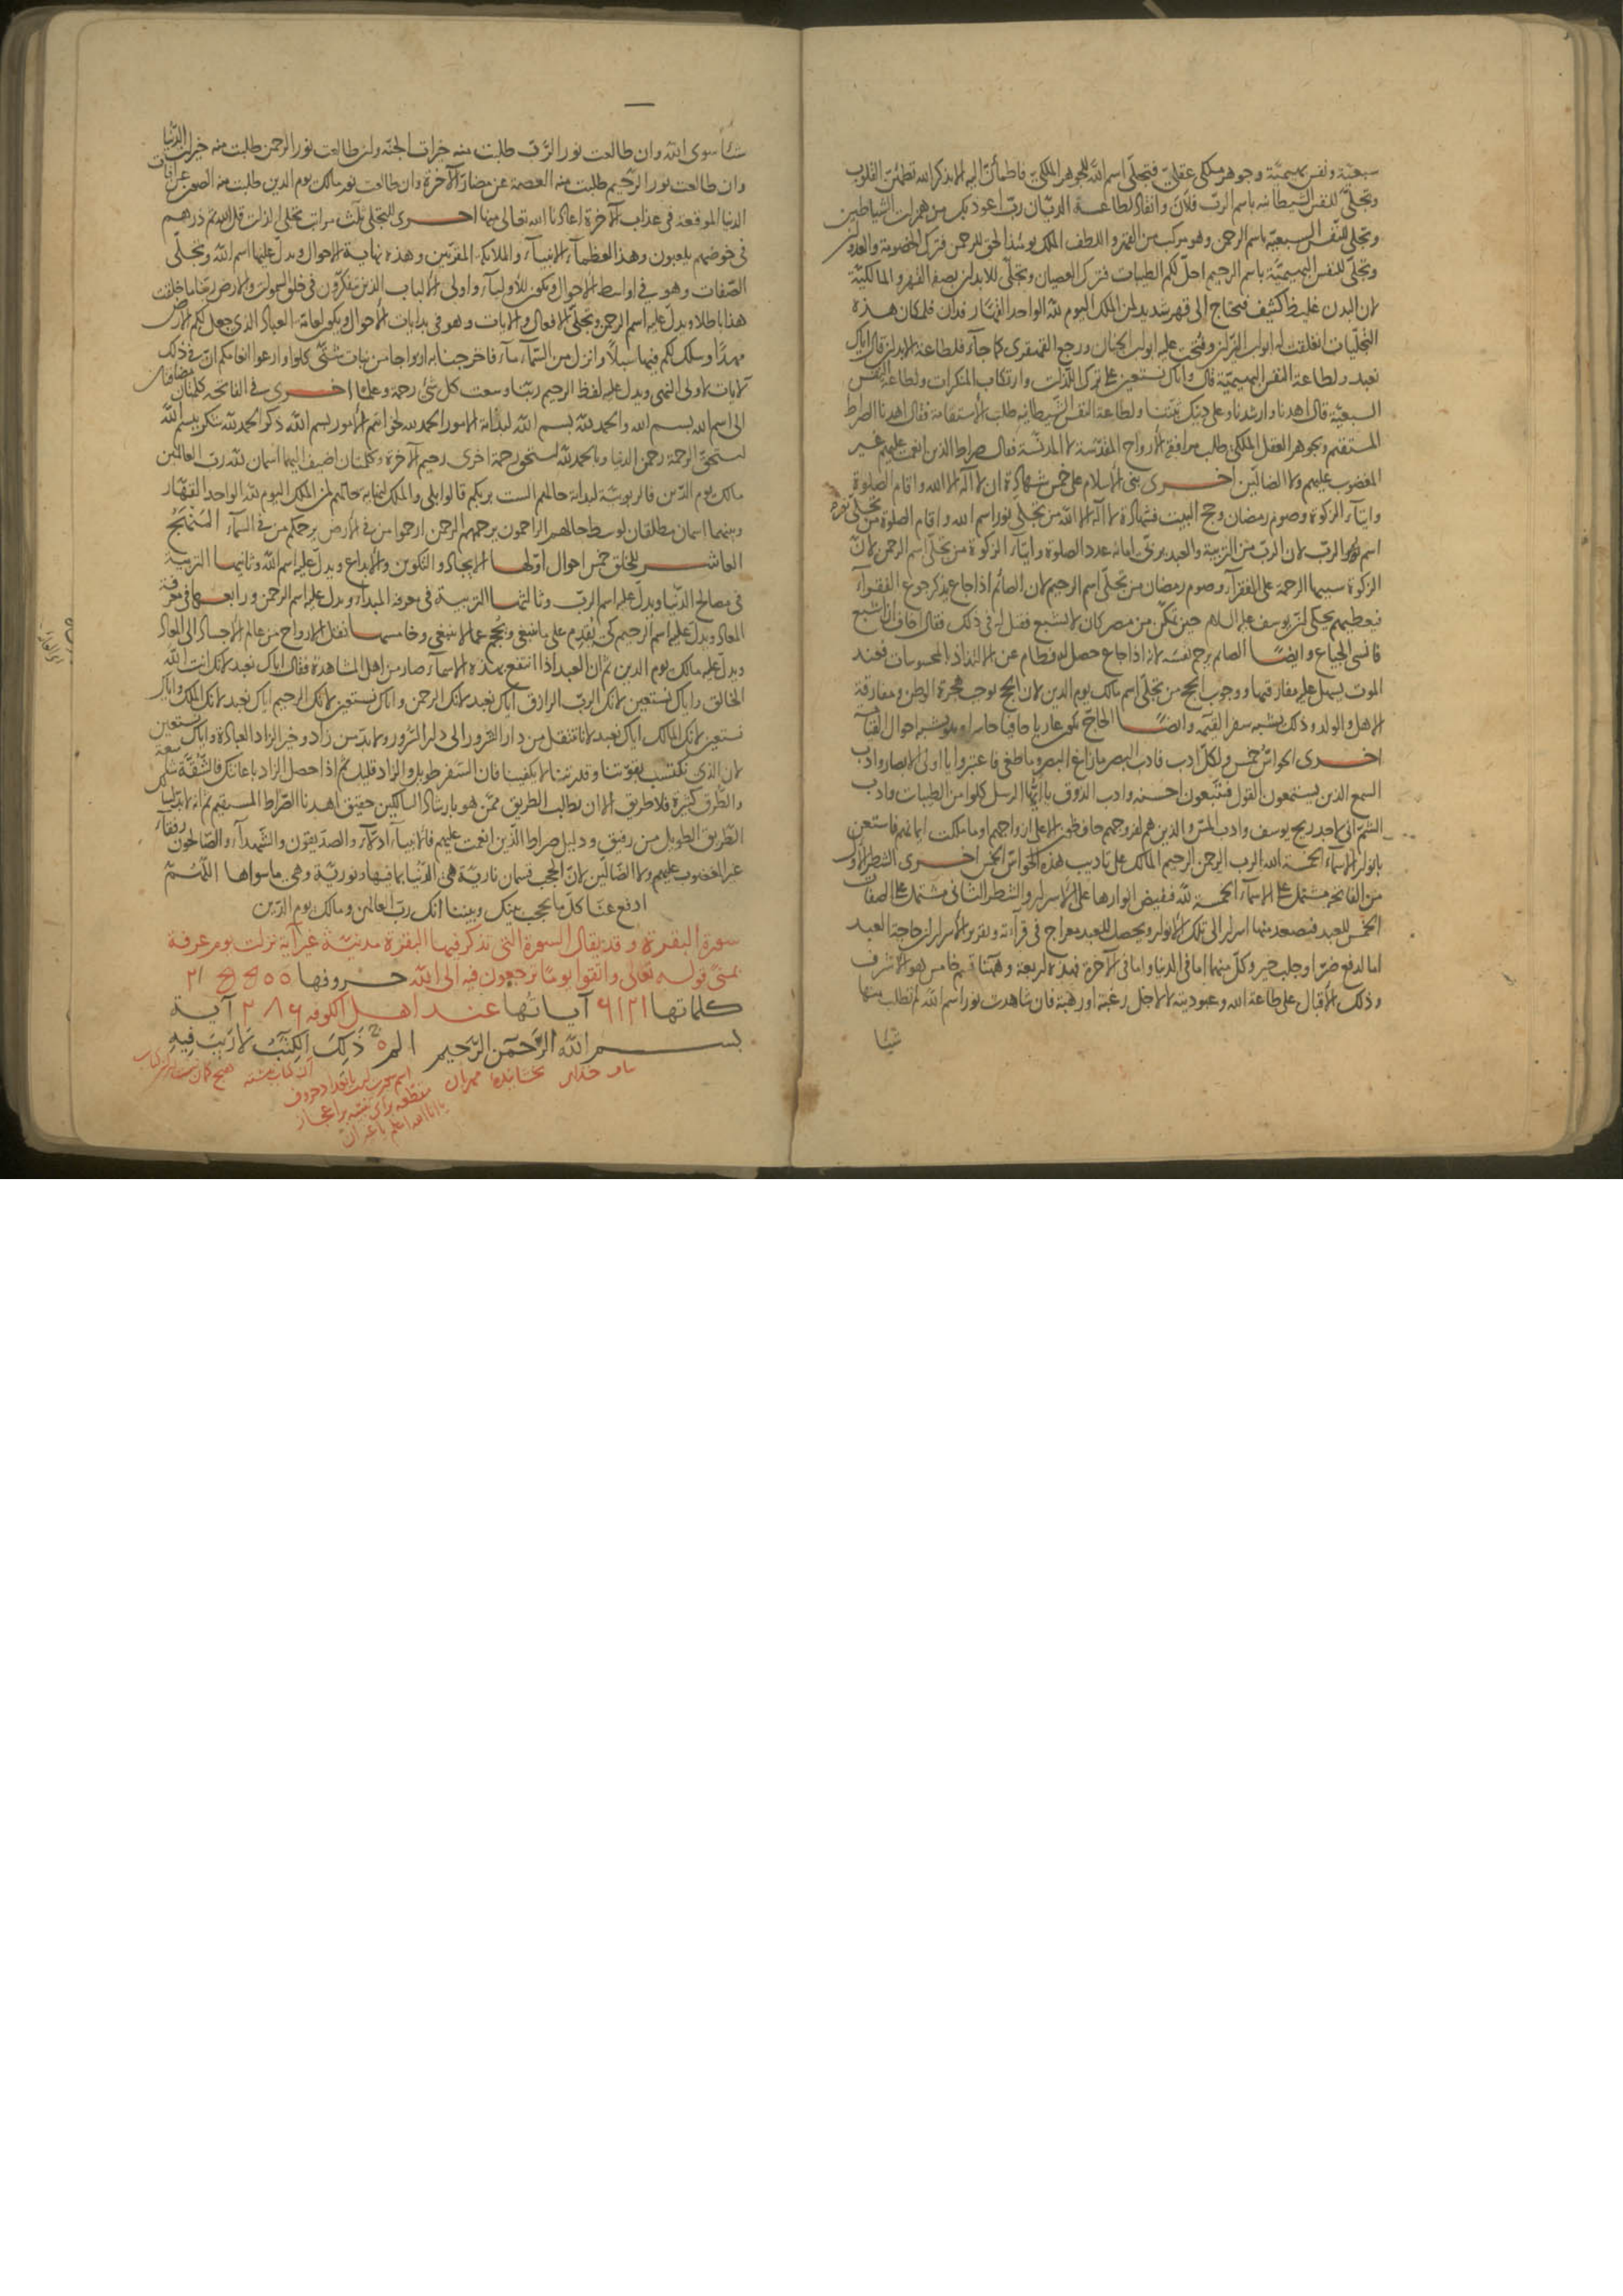 سبعيّة ونفس بهيميّة وجوهر ملكى عقلىّ فتجلّى اسم اللّه للجوهر الملكىّ فاطمأنّ اليه الا بذكر الله تطمئنّ القلوب
وتجلّى للنفس الشيطانيه باسم الربّ فلانَ وانقاد لطاعة الديّان ربّ اعوذ بك من همزات الشياطين
وتجلّى للنفس السبعيّه باسم الرحمن وهو مركب من القهر واللطف الملك يومئذ الحق للرحمن فترك الخصومة والعدوان
وتجلّى للنفس البهيميّة باسم الرحيم احلّ لكم الطيبات فترك العصيان وتجلّى للابدان بصفة القهر والمالكيّة
لان البدن غليظ كثيف فيحتاج الى قهر شديد لمن الملك اليوم لله الواحد القهّار فدان فلمكان هذه
التجلّيات انغلقت له ابواب النيّران وفتحت عليه ابواب الجنان ورجع القهقرى كما جاء فلطاعة الابدان قال ايّاك
نعبد ولطاعة النفس البهيميّة قال وايّاك نستعين على ترك اللّذات وارتكاب المنكرات ولطاعة النفس
السبعيّة قال اهدنا وارشدنا وعلى دينك ثبّتنا ولطاعة النفس الشيطانية طلب الاستقامة فقال اهدنا الصراط
المستقيم وبجوهر العقل الملكى طلب مرافقة الارواح المقدّسة لا المدنّسة فقال صراط الذين انعمت عليهم غير
المغضوب عليهم ولا الضالّين اخرى بنى الاسلام على خمس شهادة ان لا اله الا الله واقام الصلوة
وايتاء الزكوة وصوم رمضان وحج البيت فشهادة لا اله الا الله من تجلّى نور اسم الله واقام الصلوة من تجلّى نور
اسم الربّ لان الربّ من التربية والعبد يربّى ايمانه عدد الصلوة وايتاء الزكوة من تجلّى اسم الرحمن لانّ
الزكوة سببها الرحمة على الفقراء وصوم رمضان من تجلّى اسم الرحيم لان الصائم اذا جاع يذكر جوع الفقراء
فيعطيهم يحكى انّ يوسف عليه السلام حين تمكّن من مصر كان لا يشبع فقيل له فى ذلك فقال اخاف ان اشبع
فانسى الجياع وايضًا الصائم يرحم نفسه لانه اذا جاع حصل له فطام عن الالتذاذ بالمحسوسات فعند
الموت يسهل عليه مفارقتها ووجوب الحج من تجلّى اسم مالك يوم الدين لان الحج يوجب هجرة الوطن ومفارقة
الاهل والولد وذلك يشبه سفر القيمه وايضًا الحاجّ يكون عاريا حافيا حاسرا وهو يشبه احوال القيامة
اخرى الحواسّ خمس ولكلّ ادب فادب البصر ما زاغ البصر وما طغى فاعتبروا يا اولى الابصار وادب
السمع الذين يستمعون القول فيتّبعون احسنه وادب الذوق يا ايّها الرسل كلوا من الطيبات وادب
الشمّ انّى لاجد ريح يوسف وادب المسّ والذين هم لفروجهم حافظون الا على ازواجهم او ما ملكت ايمانهم فاستعن
بانوار الاسماء الخمسة الله الرب الرحمن الرحيم المالك على تاديب هذه الحواسّ الخمس اخرى الشطر الاول
من الفاتحة مشتمل على الاسماء الخمسة لله فتفيض انوارها على الاسرار والشطر الثانى مشتمل على الصفات
الخمس للعبد فتصعد منها اسرار الى تلك الانوار ويحصل للعبد معراج فى قراءته وتقرير الاسرار ان حاجة العبد
اما لدفع ضرّ او جلب خير وكلّ منهما اما فى الدنيا واما فى الآخرة فهذه اربعة وههنا قسم خامس هو الاشرف
وذلك الاقبال على طاعة الله وعبوديته لا لاجل رغبة او رهبة فان شاهدت نور اسم الله لم تطلب منها
شيئا
شيئا سوى الله وان طالعت نور الربّ طلبت منه خيرات الجنّة وان طالعت نور الرحمن طلبت منه خيرات الدّنيا
وان طالعت نور الرّحيم طلبت منه العصمة عن مضارّ الآخرة وان طالعت نور مالك يوم الدين طلبت منه الصون عن آفات
الدنيا الموقعة فى عذاب الآخرة اعاذنا الله تعالى منها اخرى للتجلّى ثلث مراتب تجلّى الذات قل الله ثمّ ذرهم
فى خوضهم يلعبون وهذا لعظماء الانبياء والملائكة المقرّبين وهذه نهاية الاحوال ويدلّ عليها اسم الله وتجلّى
الصّفات وهو فى اواسط الاحوال ويكون للاولياء واولى الالباب الذين يتفكّرون فى خلق السموات والارض ربّنا ما خلقت
هذا باطلا ويدلّ عليه اسم الرحمن وتجلّى الافعال والآيات وهو فى بدايات الاحوال ويكون لعامّة العباد الذى جعل لكم الارض
مهدًا وسلك لكم فيها سبلًا وانزل من السّماء ماء فاخرجنا به ازواجا من نبات شتّى كلوا وارعوا انعامكم انّ فى ذلك
لآيات لاولى النهى ويدلّ عليه لفظ الرحيم ربّنا وسعت كل شئ رحمة وعلمًا اخرى فى الفاتحه كلمتان مضافتان
الى اسم الله بسم الله والحمد لله بسم الله لبداية الامور الحمد لله لخواتيم الامور بسم الله ذكر الحمد لله شكر ببسم الله
استحقّ الرحمة رحمن الدنيا وبالحمد لله استحقّ رحمة اخرى رحيم الآخرة وكلمتان اضيف اليهما اسمان لله ربّ العالمين
مالك يوم الدّين فالربوبيّة لبداية حالهم الست بربكم قالوا بلى والملك لنهاية حالهم لمن الملك اليوم لله الواحد القهّار
وبينهما اسمان مطلقان لوسط حالهم الراحمون يرحمهم الرحمن ارحموا من فى الارض يرحمكم من فى السماء المنهج
العاشر للخلق خمس احوال اوّلها الايجاد والتكوين والابداع ويدلّ عليه اسم الله وثانيها التربية
فى مصالح الدّنيا ويدلّ عليه اسم الربّ وثالثها التربية فى معرفة المبداء ويدلّ عليه اسم الرحمن ورابعها فى معرفة
المعاد ويدلّ عليه اسم الرحيم كى يقدِم على ما ينبغى ويحجم عما لا ينبغى وخامسها نقل الارواح من عالم الاجساد الى المعاد
ويدلّ عليه مالك يوم الدين ثم ان العبد اذا انتفع بهذه الاسماء صار من اهل المشاهدة فقال ايّاك نعبد لانّك انت الله
الخالق وايّاك نستعين لانّك الربّ الرازق ايّاك نعبد لانّك الرحمن وايّاك نستعين لانّك الرحيم ايّاك نعبد لانّك الملك وايّاك
نستعين لانّك المالك ايّاك نعبد لانّا ننتقل من دار الغرور الى دار السّرور ولا بدّ من زاد وخير الزاد العبادة وايّاك نستعين
لان الذى نكتسب بقوّتنا وقدرتنا لا يكفينا فان السّفر طويل والزاد قليل ثم اذا حصل الزاد باعانتك فالشّقّة شاسعة
والطّرق كثيرة فلا طريق الا ان نطلب الطريق ممّن هو بارشاد السالكين حقيق اهدنا الصّراط المستقيم ثمّ انه لا بدّ لسالك
الطّريق الطويل من رفيق ودليل صراط الّذين انعمت عليهم فالانبياء ادلّاء والصدّيقون والشّهداء والصّالحون رفقاء
غير المغضوب عليهم ولا الضّالّين لانّ الحجب قسمان ناريّة هى الدّنيا بما فيها ونوريّة وهى ما سواها اللّهمّ
ادفع عنّا كلّ ما يحجب بينك وبيننا انّك ربّ العالمين ومالك يوم الدّين
سورة البقرة وقد يقال السورة التى تذكر فيها البقرة مدنيّة غير آية نزلت يوم عرفة
بمنىً قوله تعالى واتّقوا يومًا ترجعون فيه الى الله حروفها
كلماتها ٦١٢١ آياتها عند اهل الكوفه ٢٨٦ آية
بسم الله الرّحمن الرّحيم الم ذٰلك الكتٰب لا ريب فيه